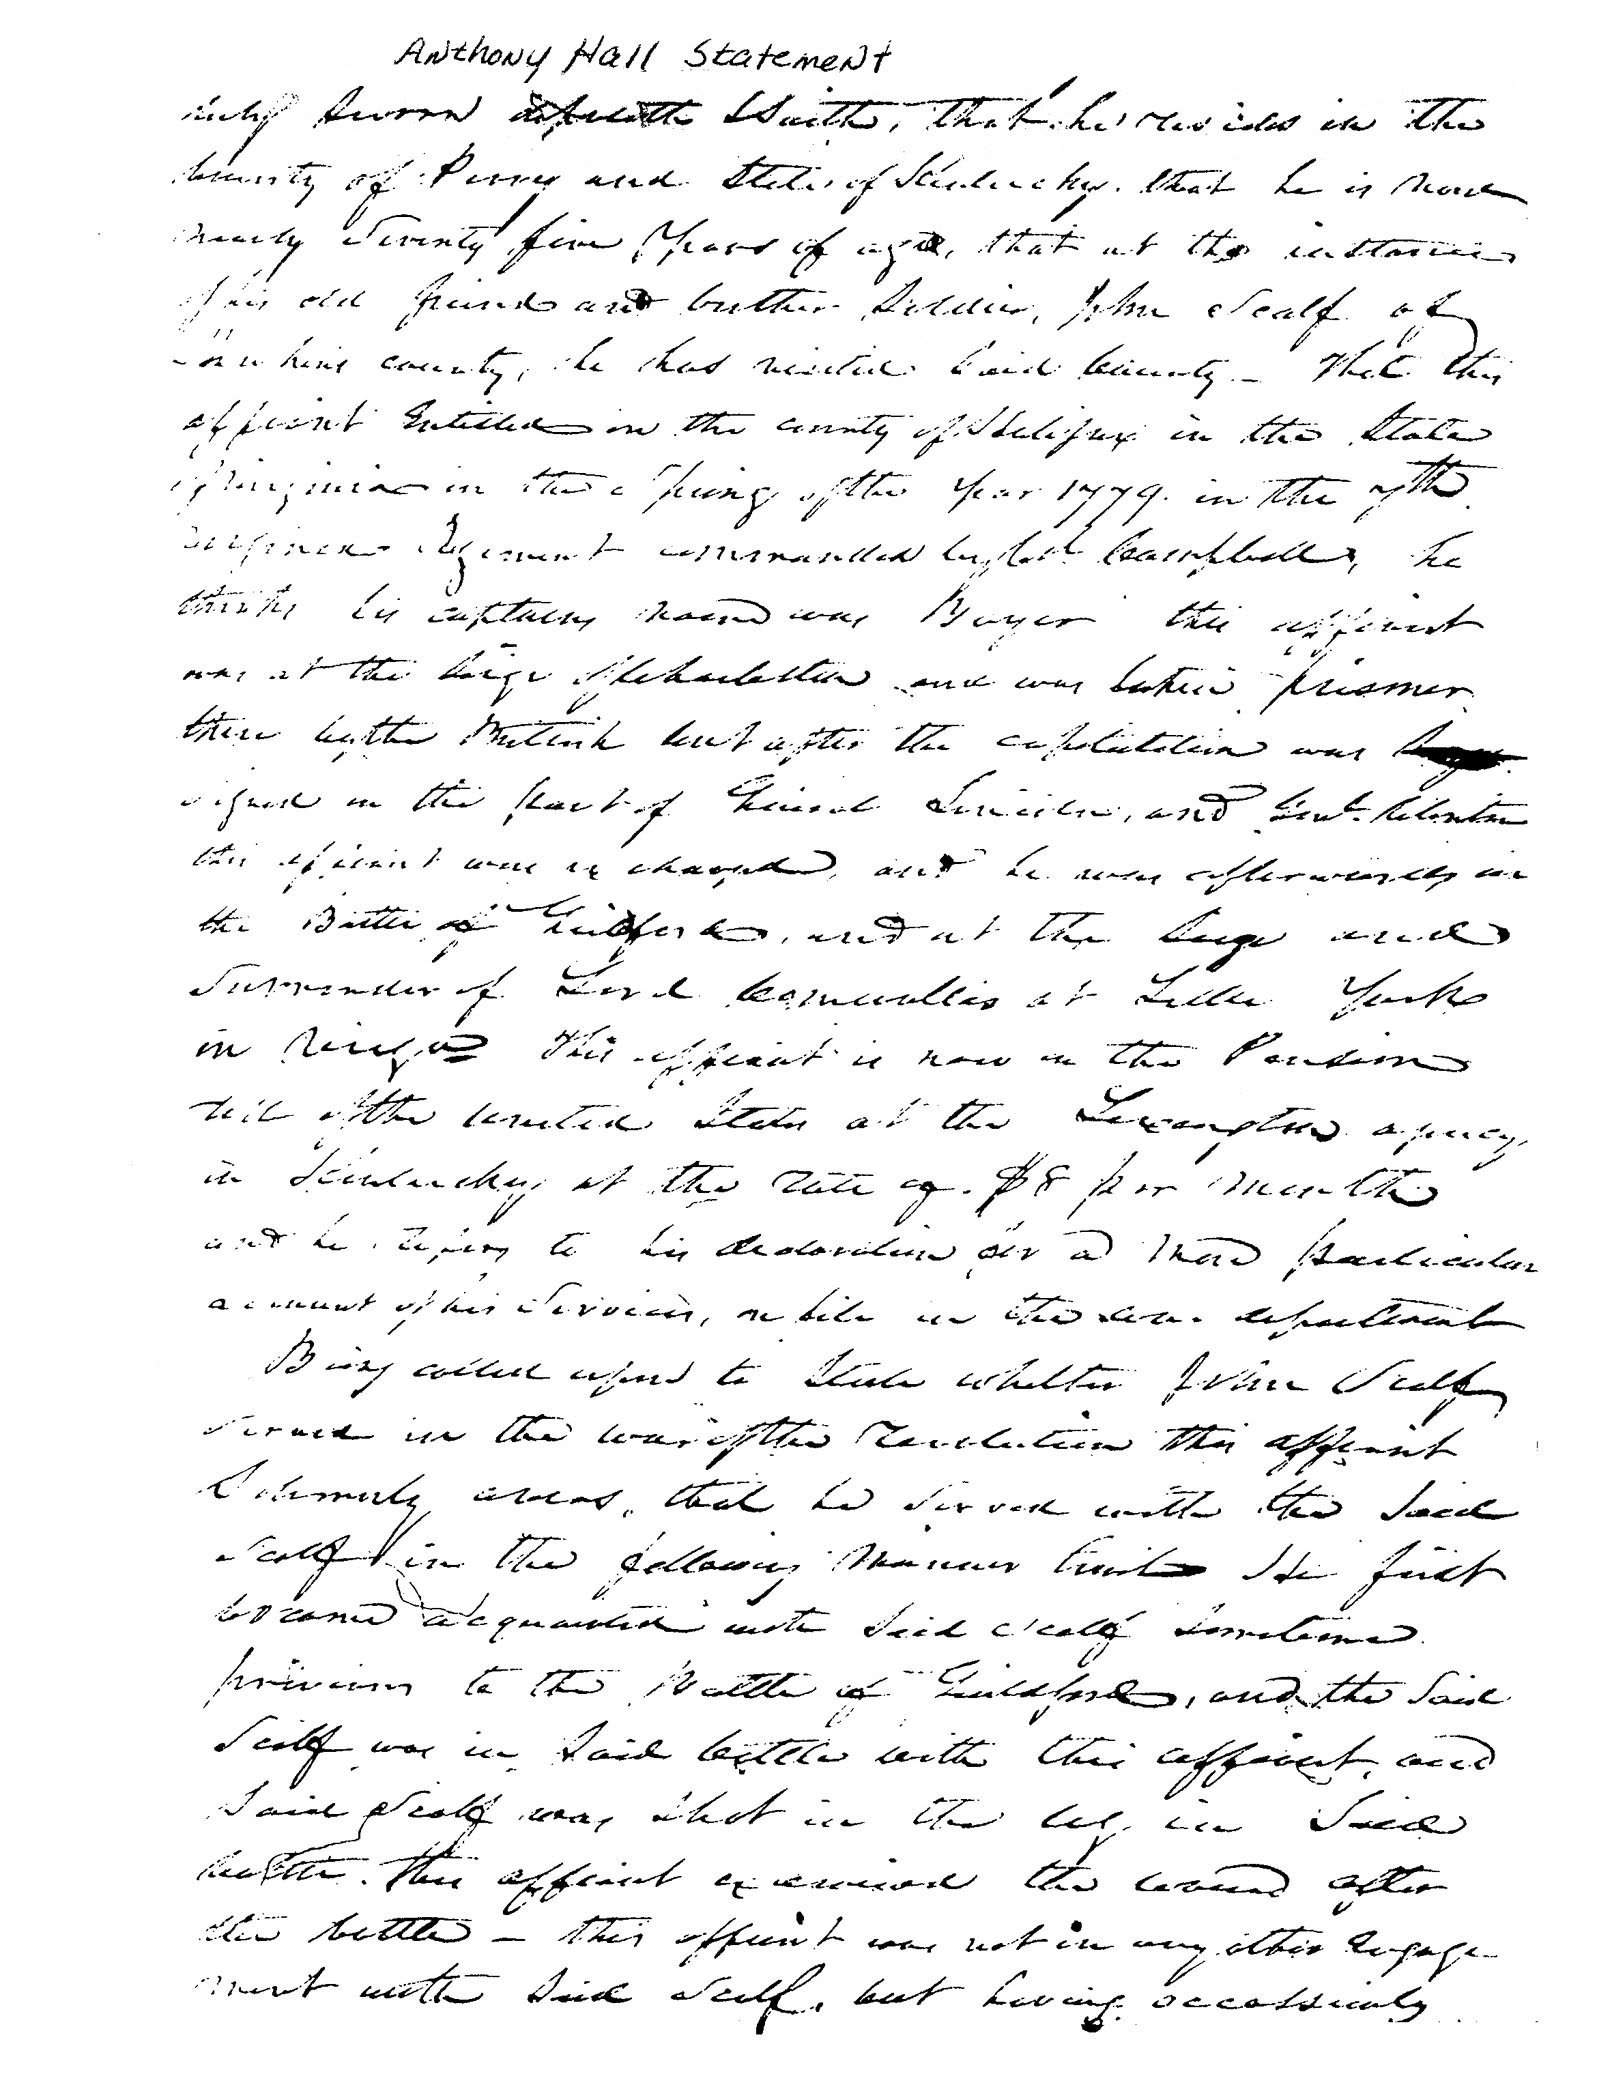 Anthony Hall Statement
duly sworn deposeth & saith, that he resides in the
County of Perry and State of Kentucky. that he is now
nearly Seventy five Years of age, that at the instance
of his old friend and brother Soldier, John Scalf of
Hawkins county, he has visited said County – That this
affiant Enlisted in the county of Halifax in the State
of Virginia in the Spring of the Year 1779. in the 7th
Virginia Regiment commanded by Col. Campbell, he
thinks his captains name was Boyer this affiant
was at the Siege of Charleston and was taken prisoner
there by the British but after the capitulation was
signed on the part of General Lincoln, and Genl. Clinton
this affiant was exchanged, and he was afterwards in
the Battle of Guilford, and at the Siege and
Surrender of Lord Cornwallis at Little York
in Virga This affiant is now on the Pension
roll of the United States at the Lexington agency,
in Kentucky, at the rate of $8 per Month
and he refers to his declaration for a more particular
account of his Services, on file in the war department
Being called upon to State whether John Scalf
served in the war of the revolution this affiant
Solemnly avers, that he served with the said
Scalf in the following Manner He first
became acquainted with said Scalf Sometime
previous to the Battle of Guildford, and the said
Scalf was in said battle with this affiant, and
said Scalf was shot in the leg, in said
battle. This affiant examined the wound after
the battle – this affiant was not in any other engage
ment with said Scalf, but having occassionly